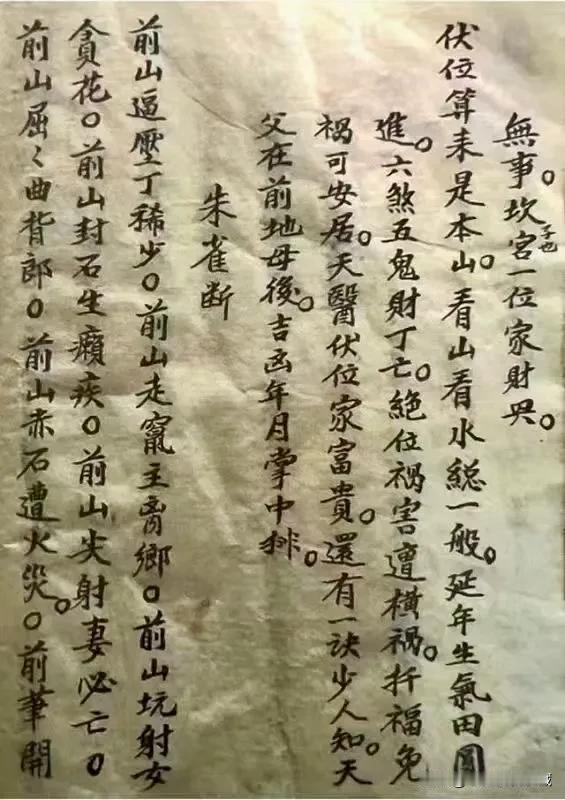 無事。坎宮子也一位家財興。
伏位算来是本山。看山看水総一般。延年生氣田園
進。六煞五鬼財丁亡。絶位禍害遭橫禍。扦福免
禍可安居。天醫伏位家富貴。還有一訣少人知。天
父在前地母後。吉凶年月掌中排。
朱雀断
前山逼壓丁稀少。前山走竄主离鄉。前山坑射女
貪花。前山封石生癩疾。前山尖射妻必亡。
前山屈々曲背郎。前山赤石遭火災。前筆開